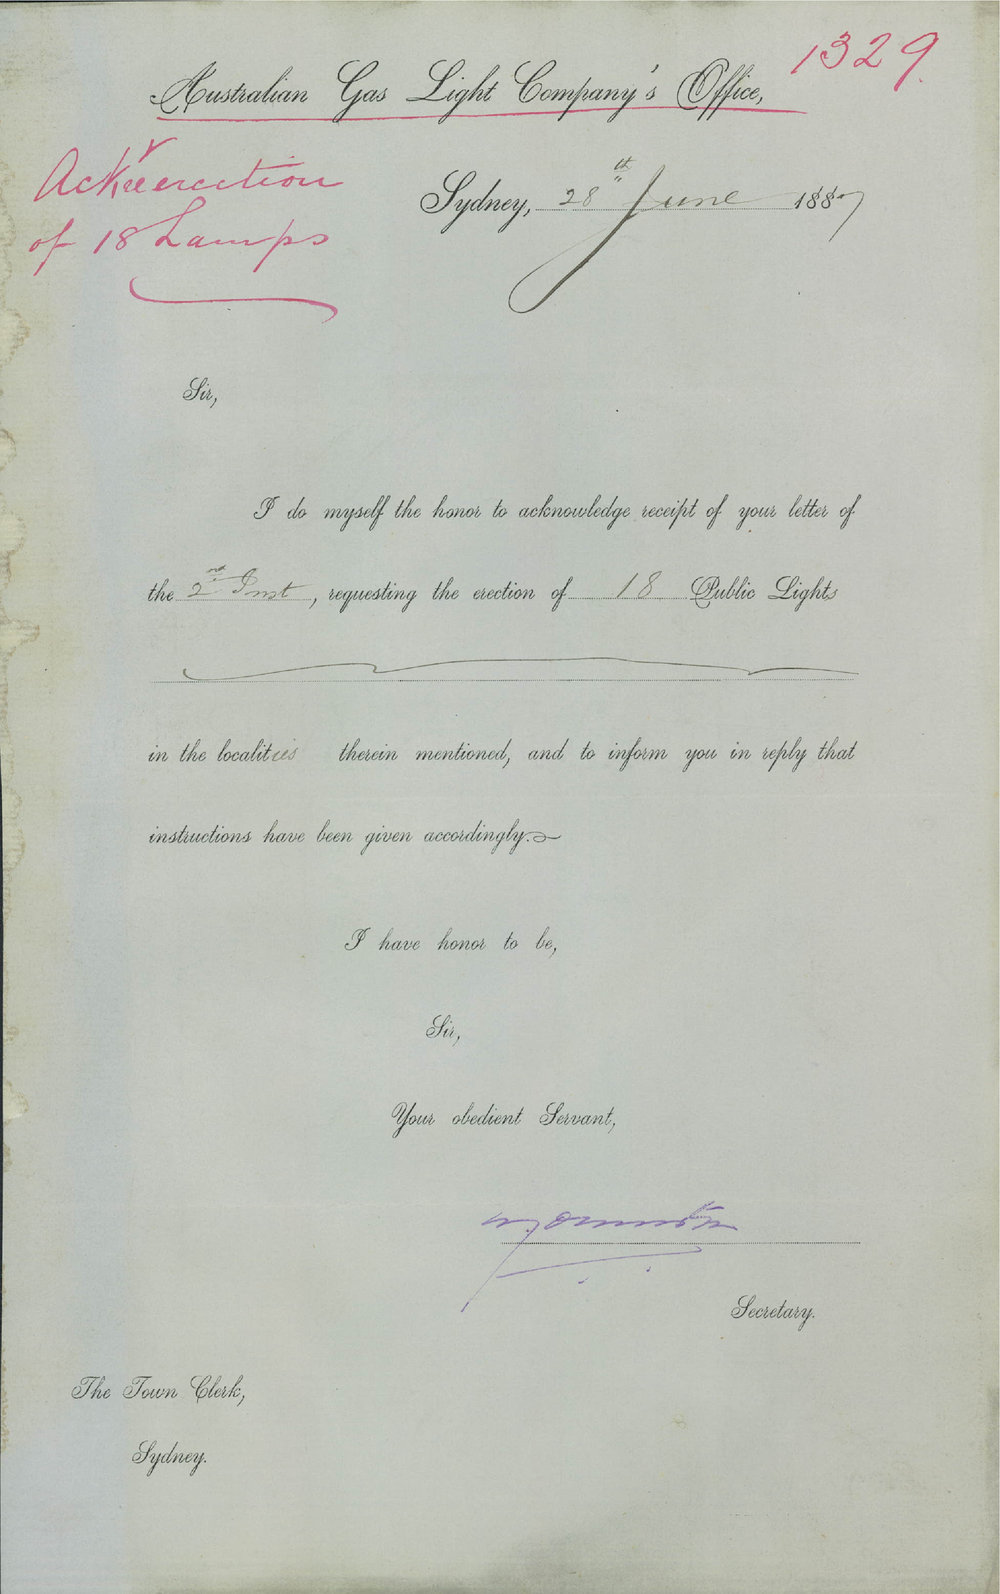 1329.
Australian Gas Light Company's Office,
Ackg erection
of 18 Lamps
Sydney, 28th June 1887
Sir,
I do myself the honor to acknowledge receipt of your letter of
the 2nd Inst, requesting the erection of 18 Public Lights
in the localities therein mentioned, and to inform you in reply that
instructions have been given accordingly.
I have honor to be,
Sir,
Your obedient Servant,
Secretary.
The Town Clerk,
Sydney.